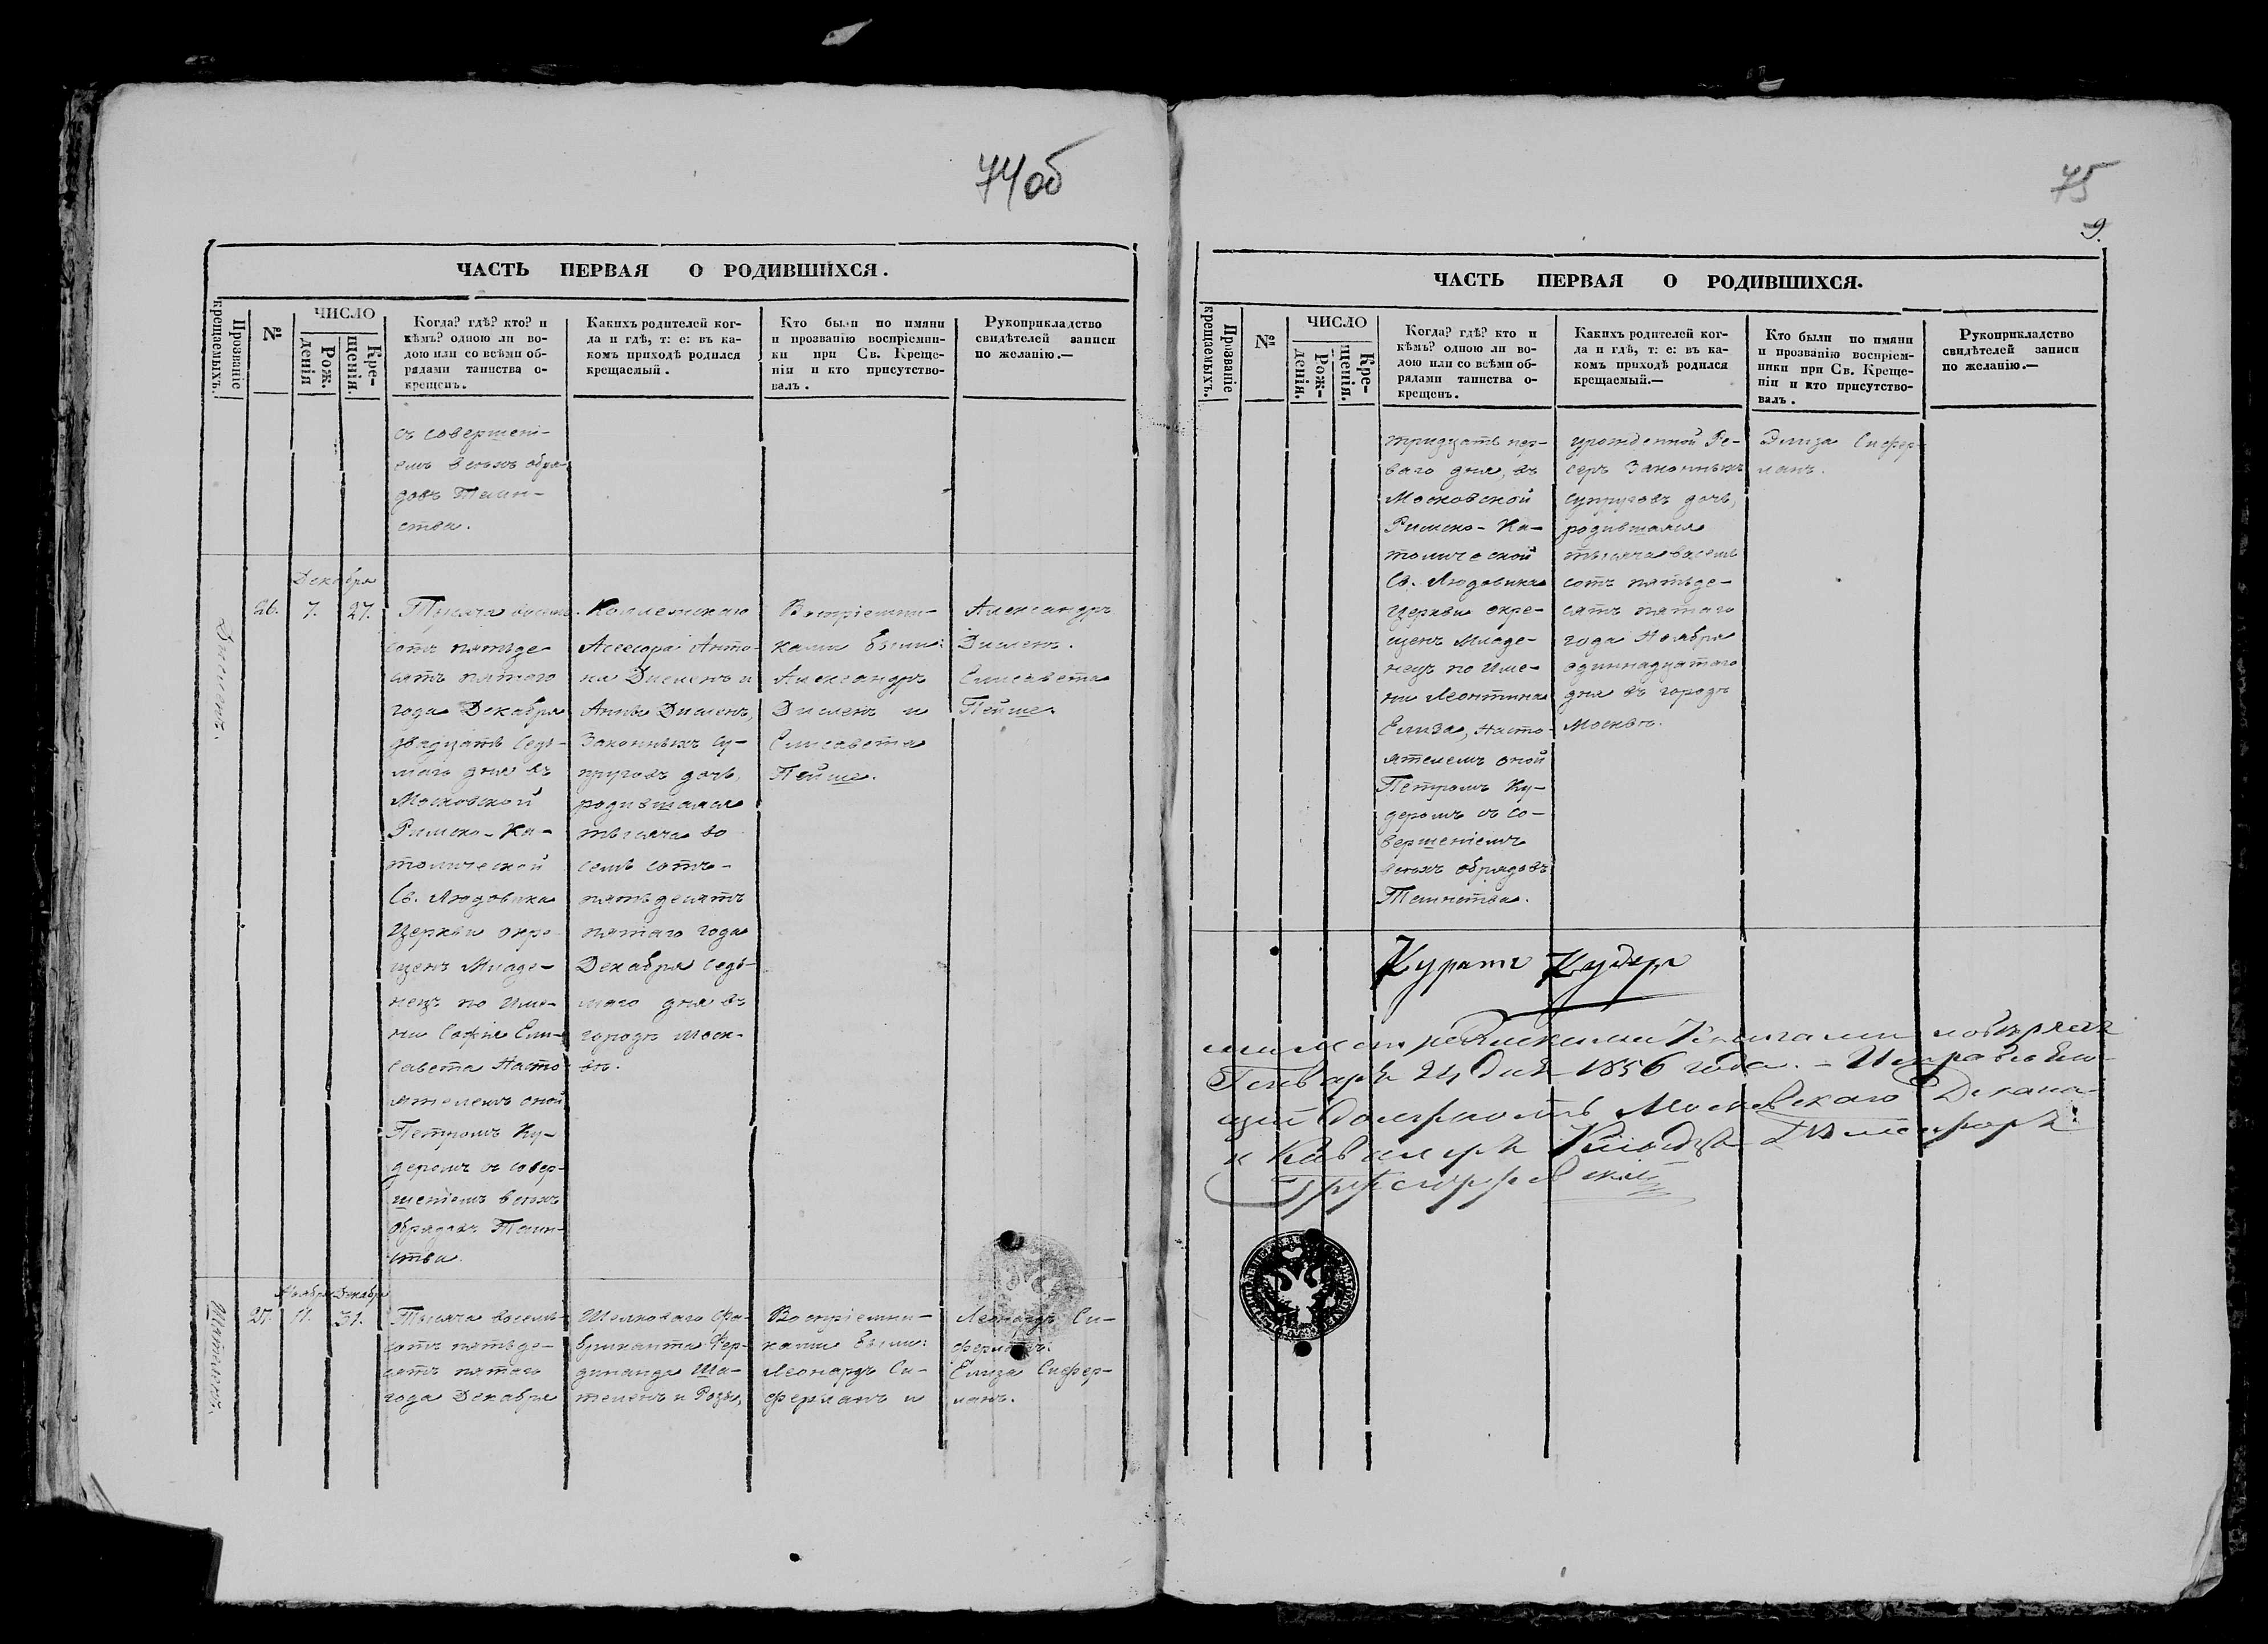 74об
ЧАСТЬ ПЕРВАЯ О РОДИВШИХСЯ.
Прозваніе крещаемыхъ.
№
ЧИСЛО
Рожденія
Крещенія.
Когда? гдѣ? кто? и
кѣмъ? одною ли во-
дою или со всѣми об-
рядами таинства о-
крещенъ.
Какихъ родителей ког-
да и гдѣ, т: е: въ ка-
комъ приходѣ родился
крещаемый.
Кто были по имяни
и прозванію воспріемни-
ки при Св. Креще-
ніи и кто присутство-
валъ.
Рукоприкладство
свидѣтелей записи
по желанію.—
съ совершені-
емъ всѣхъ обря-
довъ Таин-
ства.
Декабря
26. 7. 27.
Тысяча восемь
сотъ пятьде
сятъ пятаго
года Декабря
двадцать седь-
маго дня въ
Московской
Римско-Ка-
толической
Св. Людовика
Церкви окре-
щенъ Младе-
нецъ по Име-
ни Софія Ели-
савета Насто
ятелемъ оной
Петромъ Ку-
деромъ съ совер-
шеніемъ всѣхъ
обрядовъ Таин-
ства.
Коллежскаго
Асессора Анто-
на Дименъ и
Анны Дименъ,
Законныхъ Су-
пруговъ дочь,
родившаяся
тысяча во
семь сотъ-
пятьдесятъ
пятаго года
Декабря седь-
маго дня въ
городѣ Моск-
вѣ.
Воспріемни-
ками были:
Александръ
Дименъ и
Елисавета
Пейше.
Александръ
Дименъ.
Елисавета
Пейше.
Ноября Декабря
Шателенъ.
27. 11. 31.
Тысяча восемь-
сотъ пятьде-
сятъ пятаго
года Декабря
Шелковаго Фа-
бриканта Фер-
динанда Ша-
теленъ и Розы,
Воспріемни-
ками были:
Леонардъ Си-
ферланъ и
Леонардъ Си-
ферланъ.
Елиза Сифер-
ланъ.
75
9.
ЧАСТЬ ПЕРВАЯ О РОДИВШИХСЯ.
Прозваніе крещаемыхъ.
№
ЧИСЛО
Рожденія.
Крещенія.
Когда? гдѣ? кто и
кѣмъ? одною ли во-
дою или со всѣми об-
рядами таинства о-
крещенъ.
Какихъ родителей ког-
да и гдѣ, т: е: въ ка-
комъ приходѣ родился
крещаемый.—
Кто были по имяни
и прозванію воспріем-
ники при Св. Креще-
ніи и кто присутство-
валъ.
Рукоприкладство
свидѣтелей записи
по желанію.—
тридцать пер-
ваго дня, въ
Московской
Римско-Ка-
толической
Св. Людовика
Церкви окре-
щенъ Младе-
нецъ по Име-
ни Леонтина
Елиза, Насто-
ятелемъ оной
Петромъ Ку-
деромъ съ со-
вершеніемъ
всѣхъ обрядовъ
Таинства.
урожденной Ре-
серъ Законныхъ
супруговъ дочь,
родившаяся
тысяча восемь
сотъ пятьде-
сятъ пятаго
года Ноября
одиннадцатаго
дня въ городѣ
Москвѣ.
Элиза Сифер
ланъ.
Куратъ Кудеръ
метрическими Книгами повѣрялъ
Генваря 24 дня 1856 года. – Исправляю-
щій должность Московскаго Декана
и Кавалеръ Ксендзъ